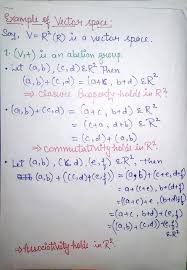 Example of Vector space:
Say, V = R²(R) is a vector space.
1. (V,+) is an abelian group.
• Let (a,b), (c,d) ε R² Then
(a,b) + (c,d) = (a+c, b+d) ε R²
⇒ Closure property holds in R².
• (a,b) + (c,d) = (a+c, b+d) ε R²
= (c+a, d+b) ε R²
= (c,d) + (a,b)
⇒ Commutativity holds in R².
• Let (a,b), (c,d), (e,f) ε R², then
(a,b) + ((c,d)+(e,f)) = (a,b) + (c+e, d+f)
= (a+(c+e), b+(d+f))
= ((a+c)+e, (b+d)+f)
= (a+c, b+d) + (e,f)
= ((a,b)+(c,d)) + (e,f)
⇒ Associativity holds in R².